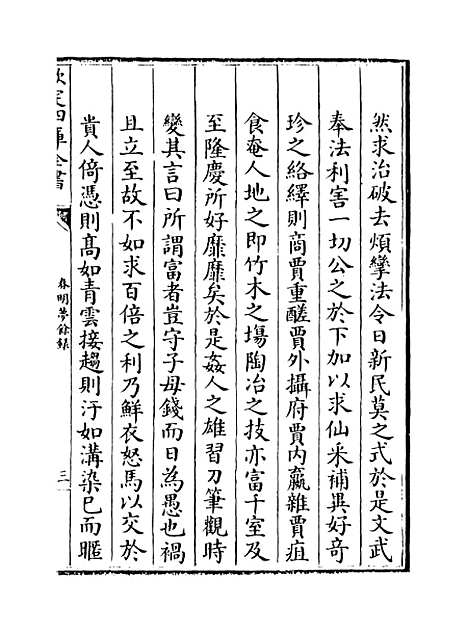 然求治破去煩孿法令日新民莫之式於是文武
奉法利害一切公之於下加以求仙采補異好奇
珍之絡繹則商賈重醝賈外攝府賈内羸雜賈疽
食奄人地之即竹木之塲陶冶之技亦富千室及
至隆慶所好靡靡矣於是姦人之雄習刀筆觀時
變其言曰所謂富者豈守子母錢而日為愚也禍
且立至故不如求百倍之利乃鮮衣怒馬以交於
貴人倚憑則髙如青雲接趨則汙如溝染巳而暱
欽定四庫全書
春明夢餘録
三